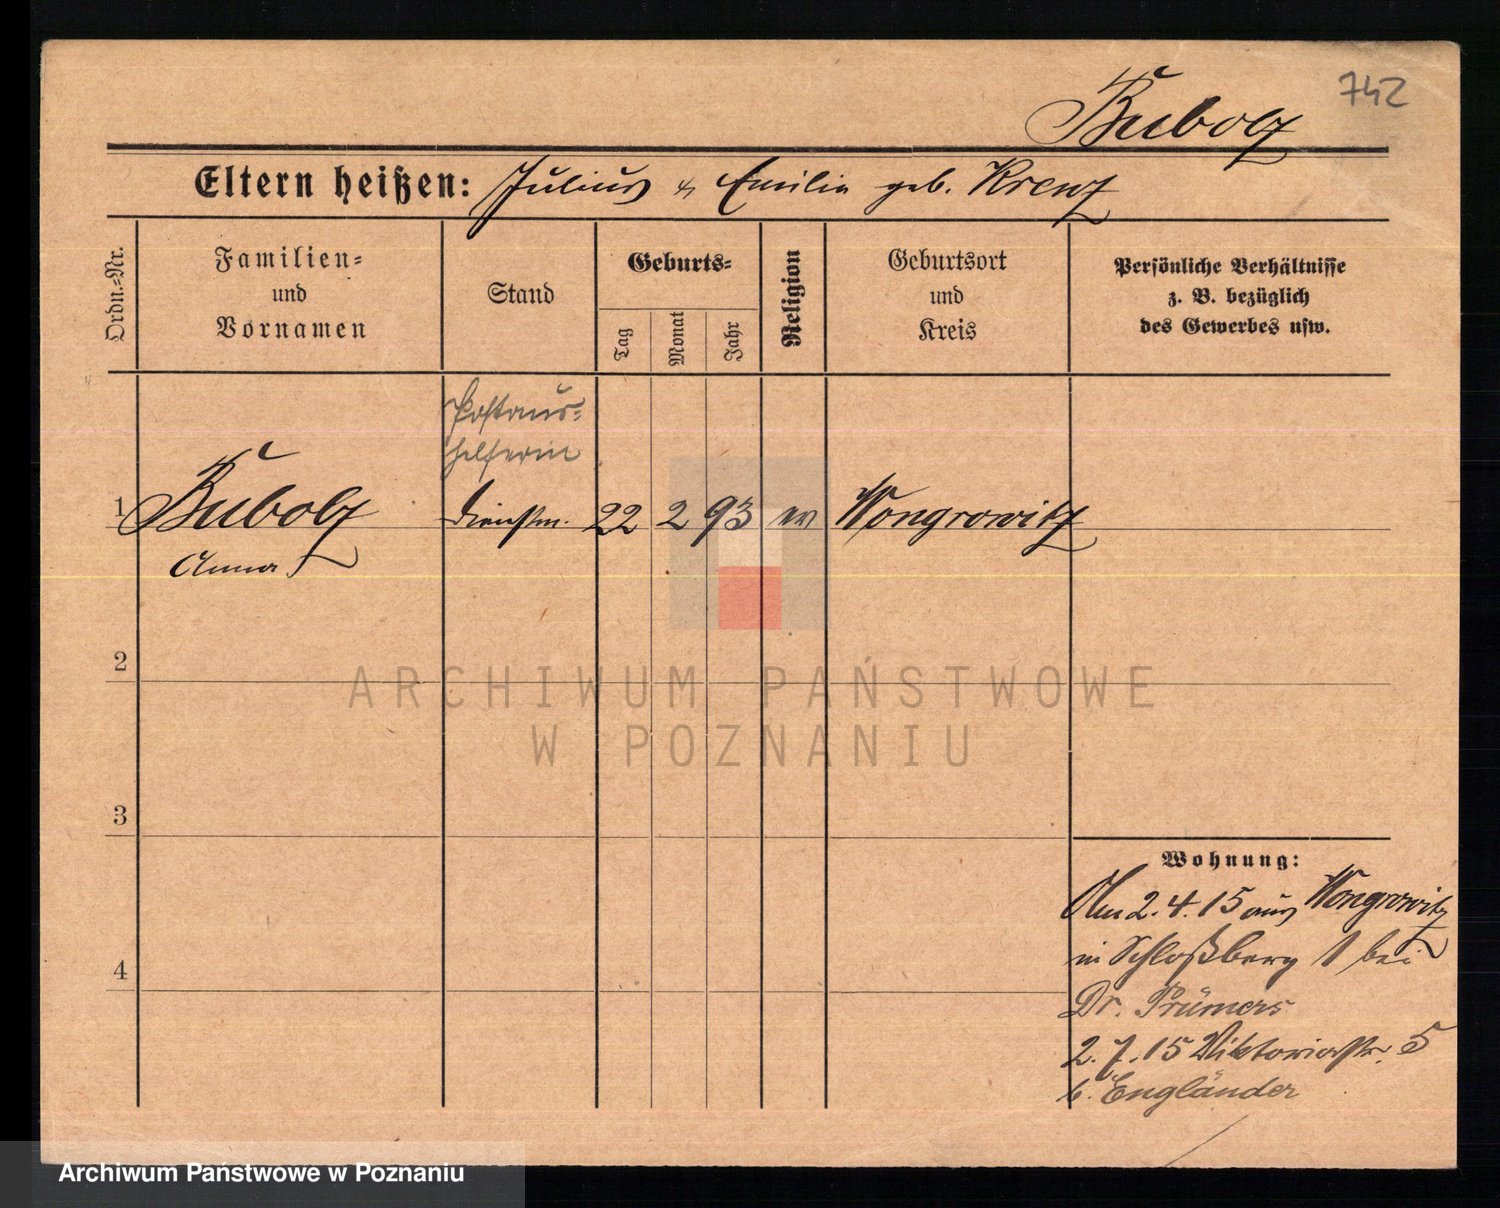 742
Bubolz
Eltern heißen: Julius & Emilie geb. Krenz
Ordn.-Nr.
Familien-
und
Vornamen
Stand
Geburts-
Tag
Monat
Jahr
Religion
Geburtsort
und
Kreis
Persönliche Verhältnisse
z. B. bezüglich
des Gewerbes usw.
Postaus-
helferin
1 Bubolz Dienstm. 22 2 93 ev Wongrowitz
Anna
2
ARCHIWUM PAŃSTWOWE
W POZNANIU
3
4
Wohnung:
Am 2.4.15 aus Wongrowitz
in Schloßberg 1 bei
Dr. Prümers
2.7.15 Viktoriastr. 5
b. Engländer
Archiwum Państwowe w Poznaniu